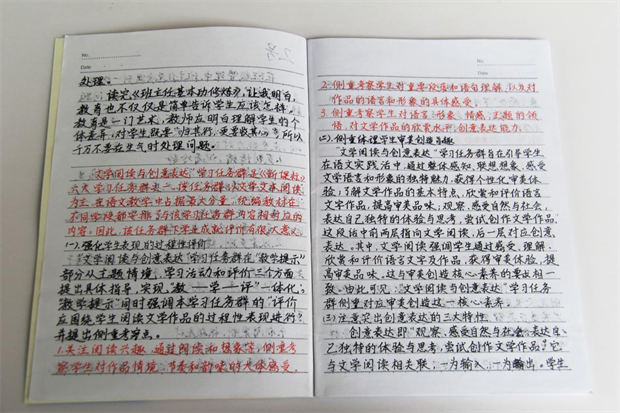 No.
Date
处理。
读完《班主任基本功修炼》，让我明白，
教育也不仅仅是简单告诉学生应该怎样。
教育是一门艺术，教师应明白理解学生的个
体差异，对学生既要 归其行，更要
千万不要在生气时处理问题。
“文学阅读与创意表达”学习任务群是《新课标》
六大学习任务群之一，该任务群以文学文本阅读
为主，在语文教学中占据最大分量，统编教材在
不同学段都安排了与该学习任务群内容相对应的
内容。因此，该任务群下学生成就评价有很大意义。
(一)、强化学生表现的过程性评价
“文学阅读与创意表达”学习任务群在“教学提示”
部分从主题情境，学习活动和评价三个方面
提出具体指导，实现“教—学—评”一体化；
“教学提示”同时强调本学习任务群的“评价
应围绕学生阅读文学作品的过程性表现进行”
并提出侧重考察点。
1.关注阅读兴趣，通过朗读和想象等，侧重考
察学生对作品情境、节奏和韵味的大体感受。
No.
Date
2. 侧重考察学生对重要段落和语句理解，以及对
作品的语言和形象的具体感受。
3. 侧重考察学生对语言、形象、情感、主题的领
悟，对文学作品的欣赏水平，创意表达能力。
(二)、侧重体现学生审美创造乐趣
“文学阅读与创意表达”学习任务群旨在引导学生
在语文实践活动中，通过整体感知、联想想象，感受
文学语言和形象的独特魅力，获得个性化审美体
验；了解文学作品的基本特点，欣赏和评价语言
文字作品，提高审美品味；观察、感受自然与社会，
表达自己独特的体验与思考，尝试创作文学作品。
这段话中前两层指向文学阅读，后一层对应创意
表达。其中，文学阅读强调学生通过感受、理解、
欣赏和评价语言文字及作品，获得审美体验，提
高审美品味，这与审美创造核心素养的要出相一
致。由此可见：“文学阅读与创意表达”学习任务
群侧重对应审美创造这一核心素养。
(三)、注意突出创意表达的三大特性
创意表达即“观察、感受自然与社会，表达自
己独特的体验与思考，尝试创作文学作品”，它
与文学阅读相关联；一为输入，一为输出。学生